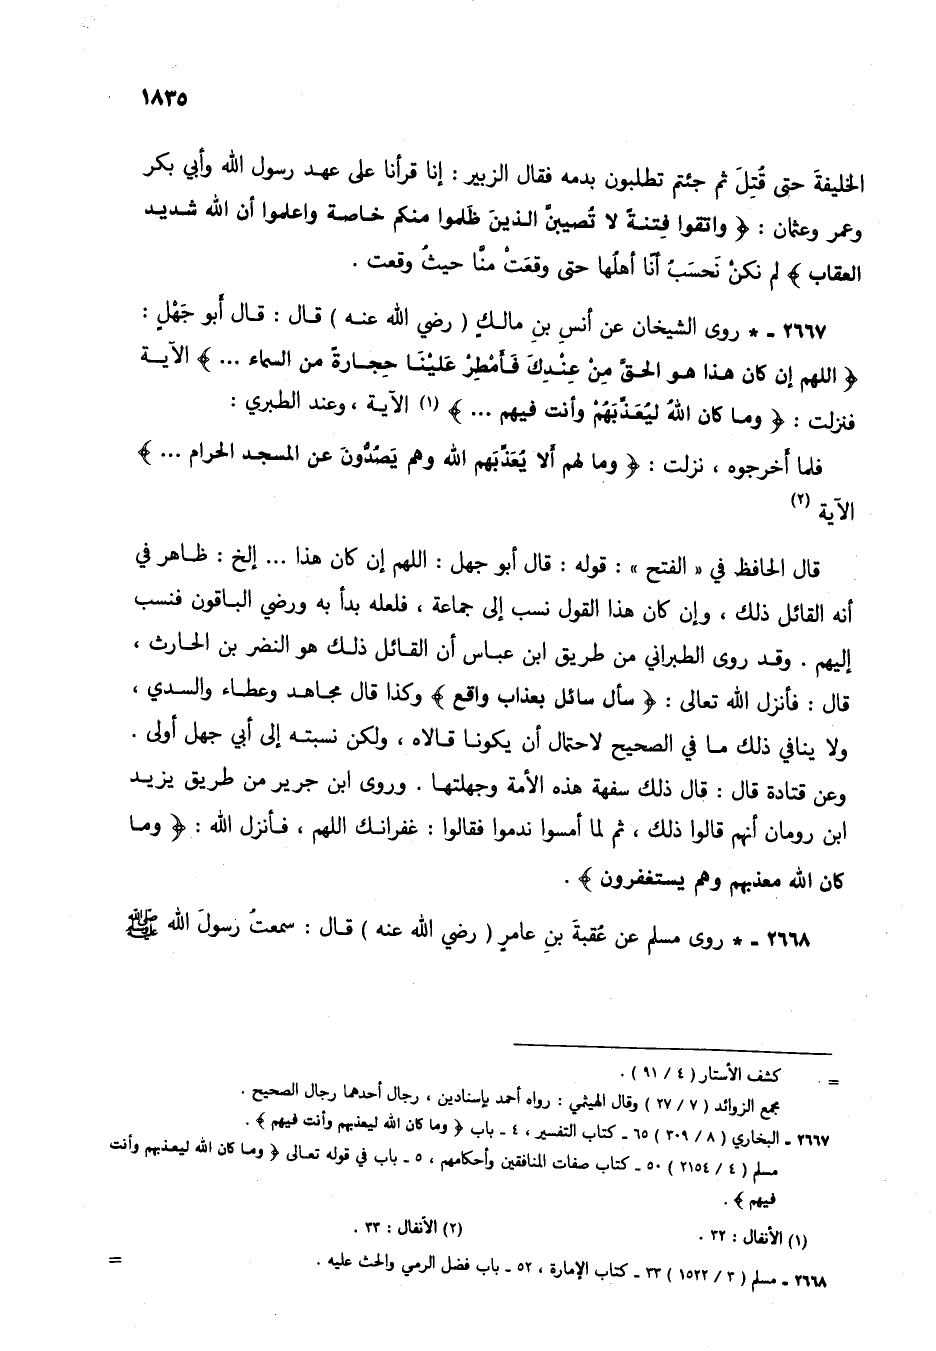 ١٨٣٥
الخليفةَ حتى قُتِلَ ثم جئتم تطلبون بدمه فقال الزبير : إنا قرأنا على عهد رسول الله وأبي بكر
وعمر وعثمان : ﴿ واتقوا فِتنةً لا تُصيبنَّ الذينَ ظَلموا منكم خاصة واعلموا أن الله شديد
العقاب ﴾ لم نكنْ نَحسَبُ أنّا أهلُها حتى وقعَتْ منَّا حيثُ وقعت .
٢٦٦٧ ـ * روى الشيخان عن أنس بنِ مالكٍ ( رضي الله عنه ) قال : قال أبو جَهْلٍ :
﴿ اللهم إن كان هذا هو الحقَّ مِنْ عِنْدِكَ فَأَمْطِرْ عَلَيْنَا حِجارةً من السماء ... ﴾ الآية
فنزلت : ﴿ وما كان اللهُ ليُعَذّبَهُمْ وأنت فيهم ... ﴾ (١) الآية ، وعند الطبري :
فلما أَخرجوه ، نزلت : ﴿ وما لهم ألا يُعَذّبَهم الله وهم يَصُدُّونَ عن المسجد الحرام ... ﴾
الآية (٢)
قال الحافظ في « الفتح » : قوله : قال أبو جهل : اللهم إن كان هذا ... إلخ : ظاهر في
أنه القائل ذلك ، وإن كان هذا القول نسب إلى جماعة ، فلعله بدأ به ورضي الباقون فنسب
إليهم . وقد روى الطبراني من طريق ابن عباس أن القائل ذلك هو النضر بن الحارث ،
قال : فأنزل الله تعالى : ﴿ سأل سائل بعذاب واقع ﴾ وكذا قال مجاهد وعطاء والسدي ،
ولا ينافي ذلك ما في الصحيح لاحتمال أن يكونا قالاه ، ولكن نسبته إلى أبي جهل أولى .
وعن قتادة قال : قال ذلك سفهة هذه الأمة وجهلتها . وروى ابن جرير من طريق يزيد
ابن رومان أنهم قالوا ذلك ، ثم لما أمسوا ندموا فقالوا : غفرانك اللهم ، فأنزل الله : ﴿ وما
كان الله معذبهم وهم يستغفرون ﴾ .
٢٦٦٨ ـ * روى مسلم عن عُقبةَ بنِ عامرٍ ( رضي الله عنه ) قال : سمعتُ رسولَ الله ﷺ
= كشف الأستار ( ٤ / ٩١ ) .
مجمع الزوائد ( ٧ / ٢٧ ) وقال الهيثمي : رواه أحمد بإسنادين ، رجال أحدهما رجال الصحيح .
٢٦٦٧ ـ البخاري ( ٨ / ٣٠٩ ) ٦٥ ـ كتاب التفسير ، ٤ ـ باب ﴿ وما كان الله ليعذبهم وأنت فيهم ﴾ .
مسلم ( ٤ / ٢١٥٤ ) ٥٠ ـ كتاب صفات المنافقين وأحكامهم ، ٥ ـ باب في قوله تعالى ﴿ وما كان الله ليعذبهم وأنت
فيهم ﴾ .
(١) الأنفال : ٣٢ . (٢) الأنفال : ٣٣ .
٢٦٦٨ ـ مسلم ( ٣ / ١٥٢٢ ) ٣٣ ـ كتاب الإمارة ، ٥٢ ـ باب فضل الرمي والحث عليه . =